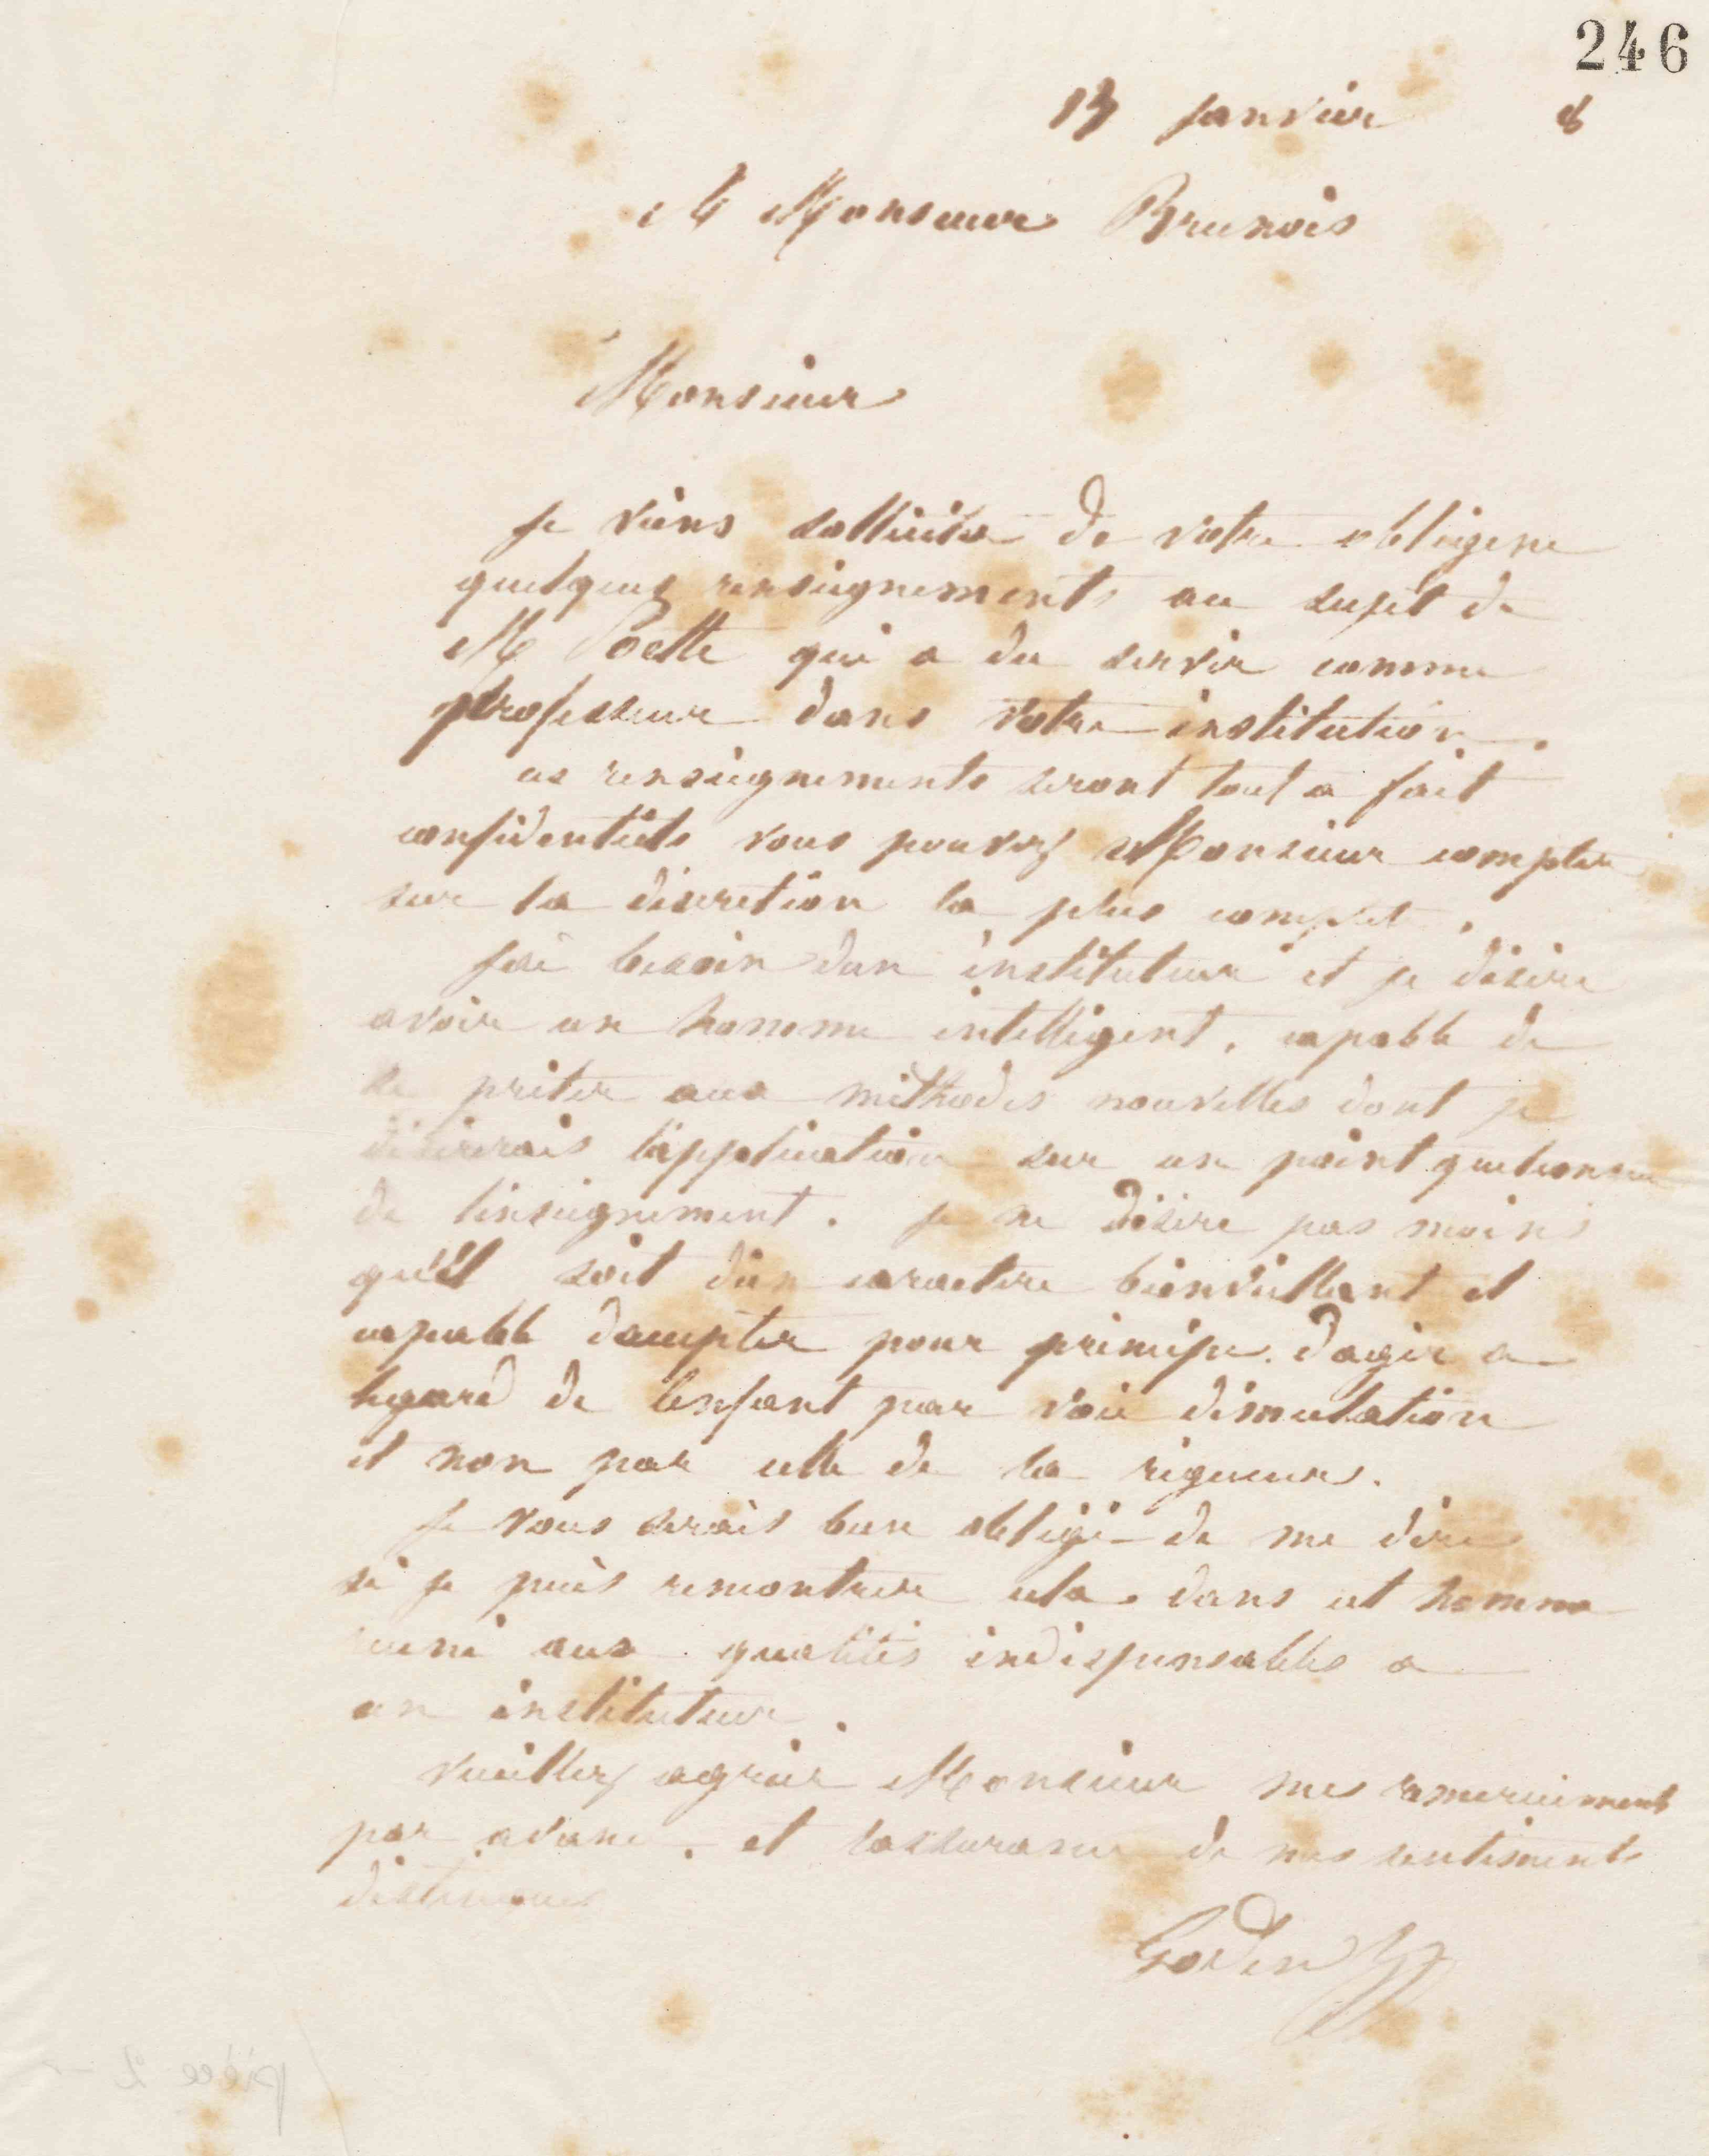 246
13 janvier 8
A Monsieur Brunois
Monsieur
Je viens solliciter de votre obligence
quelques renseignements au sujet de
M Poette qui a du servir comme
professeur dans votre institution.
ces renseignements seront tout a fait
confidentiels vous pouvez Monsieur compter
sur la discretion la plus complet.
jai besoin dun instituteur et je désire
avoir un homme intelligent, capable de
se prêter aux méthodes nouvelles dont je
désirerais l'application sur un point quelconque
de l'enseignement. je ne désire pas moins
qu'il soit d'un caractere bienveillant et
capable daccepter pour principe dagir a
legard de lenfant par voie démulation
et non par celle de la rigueur.
Je vous serais bien obligé de me dire
si je puis rencontrer cela dans cet homme
réuni aux qualités indispensables a
un instituteur.
veuillez agréer Monsieur mes remerciments
par avance, et lassurance de mes sentiments
distingués
Godin
pièce 2